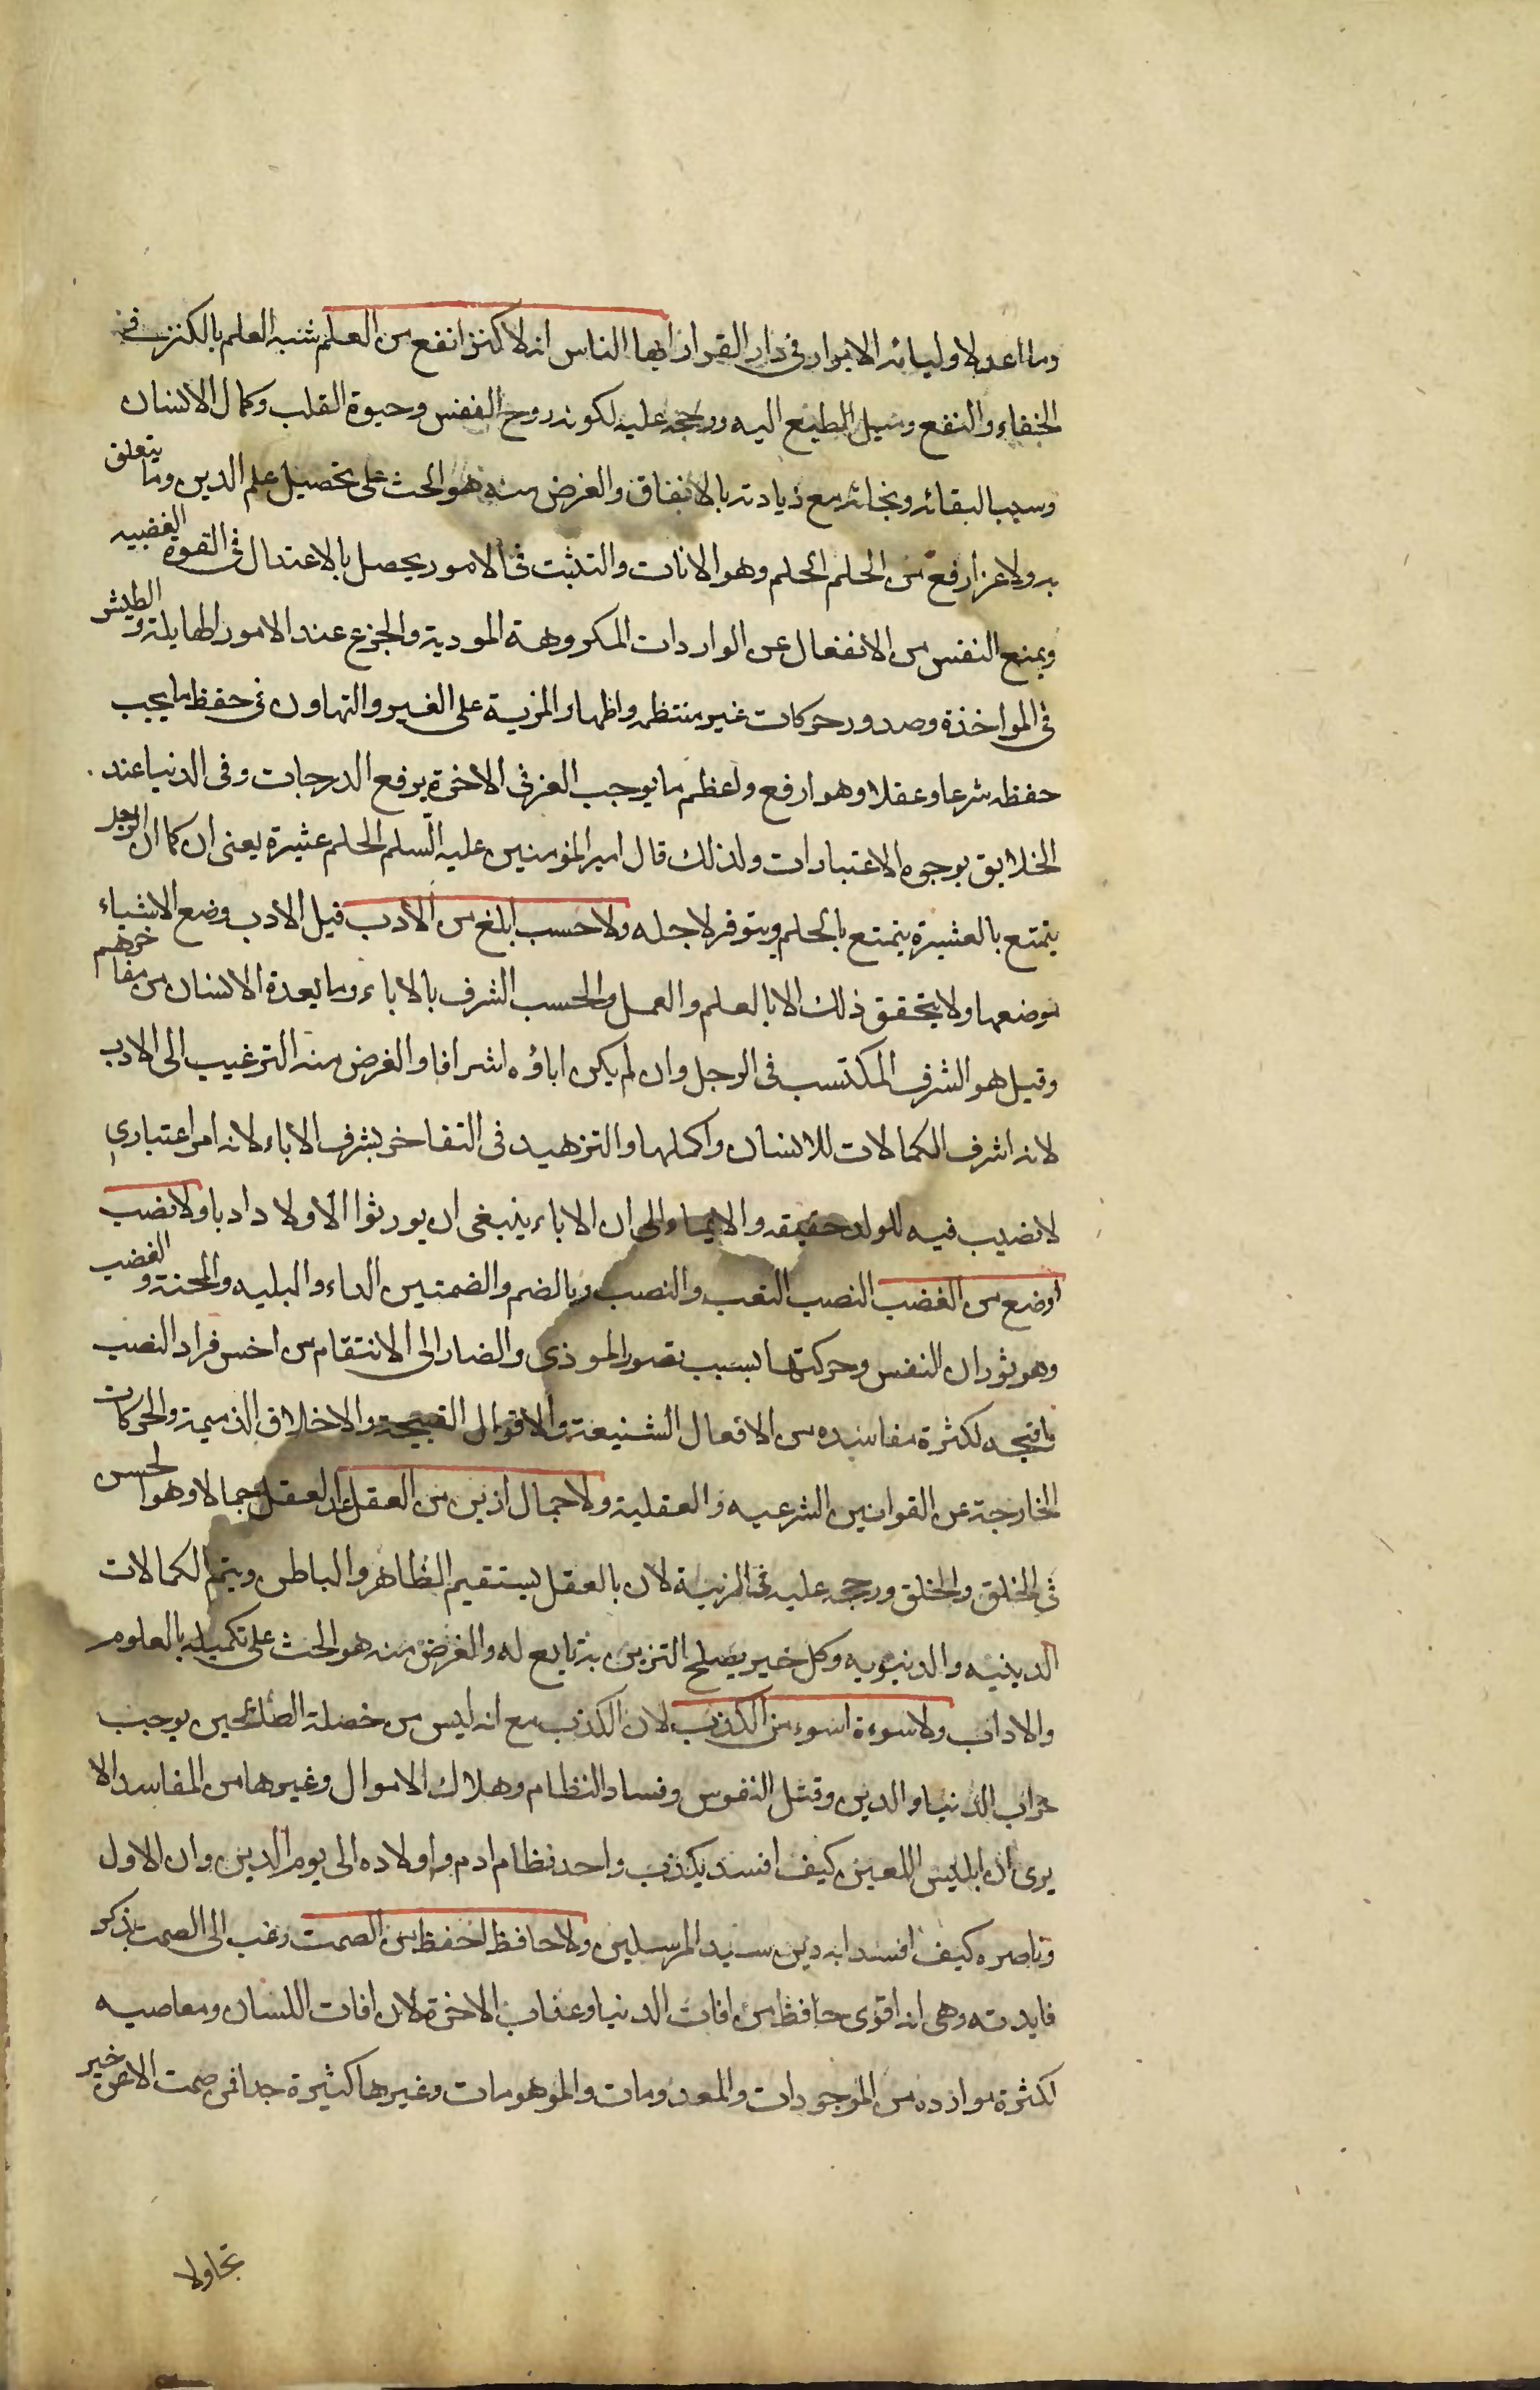 وما اعد لاوليائه الابرار فى دار القرار ايها الناس انه لا كنز انفع من العلم شبه العلم بالكنز فى
الخفاء والنفع وميل الطبع اليه ورجحه عليه لكونه روح النفس وحيوة القلب وكمال الانسان
وسببا لبقائه ونجاته مع زيادته بالانفاق والغرض منه هو الحث على تحصيل علم الدين وما يتعلق
به ولا عز ارفع من الحلم الحلم وهو الانات والتثبت فى الامور يحصل بالاعتدال فى القوة الغضبيه
ويمنع النفس من الانفعال عن الواردات المكروهة الموديه والجزع عند الامور الهايلة والطيش
فى المواخذة وصدور حركات غير منتظمه واظهار المزية على الغير والتهاون فى حفظ ما يجب
حفظه شرعا وعقلا وهو ارفع واعظم ما يوجب العز فى الاخرة برفع الدرجات وفى الدنيا عند
الخلايق بوجوه الاعتبارات ولذلك قال امير المؤمنين عليه السلم الحلم عشيرة يعنى ان كما ان الرجل
يتمتع بالعشيرة يتمتع بالحلم ويتوفر لاجله ولا حسب ابلغ من الادب قيل الادب وضع الاشياء
موضعها ولا يتحقق ذلك الا بالعلم والعمل والحسب الشرف بالاباء وما يعده الانسان من مفاخرهم
وقيل هو الشرف المكتسب فى الرجل وان لم يكن اباؤه اشرافا والغرض منه الترغيب الى الادب
لانه اشرف الكمالات للانسان واكملها والتزهيد فى التفاخر بشرف الاباء لانه امر اعتبارى
لا نصيب فيه للولد حقيقه والايماء الى ان الاباء ينبغى ان يورثوا الاولاد ادبا ولا نصب
اوضع من الغضب النصب التعب والنصب وبالضم والضمتين الداء والبليه والمحنة والغضب
وهو ثوران النفس وحركتها بسبب تصور الموذى والضار الى الانتقام من اخس افراد النصب
واقبحه لكثرة مفاسده من الافعال الشنيعة والاقوال القبيحة والاخلاق الذميمة والحركات
الخارجة عن القوانين الشرعيه والعقلية ولا جمال ازين من العقل ان للعقل جمالا وهو الحسن
فى الخلق والخلق ورجحه عليه فى المزية لان بالعقل يستقيم الظاهر والباطن ويتم الكمالات
الدينيه والدنيويه وكل خير يصلح التزين به تابع له والغرض منه هو الحث على تكميله بالعلوم
والاداب ولا سوءة اسوء من الكذب لان الكذب مع انه ليس من خصلة الصالحين يوجب
خراب الدنيا والدين وقتل النفوس وفساد النظام وهلاك الاموال وغيرها من المفاسد الا
يرى ان ابليس اللعين كيف افسد بكذب واحد نظام ادم واولاده الى يوم الدين وان الاول
وناصره كيف افسدا به دين سيد المرسلين ولا حافظ احفظ من الصمت رغب الى الصمت بذكر
فايدته وهى انه اقوى حافظ من افات الدنيا وعذاب الاخرة لان افات اللسان ومعاصيه
لكثرة موارده من الموجودات والمعدومات والموهومات وغيرها كثيرة جدا فمن صمت الا عن خير
نجا ولا